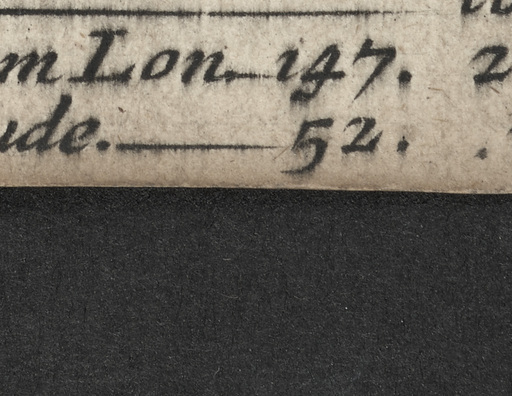 m Lon. 147. 2
ude. 52.